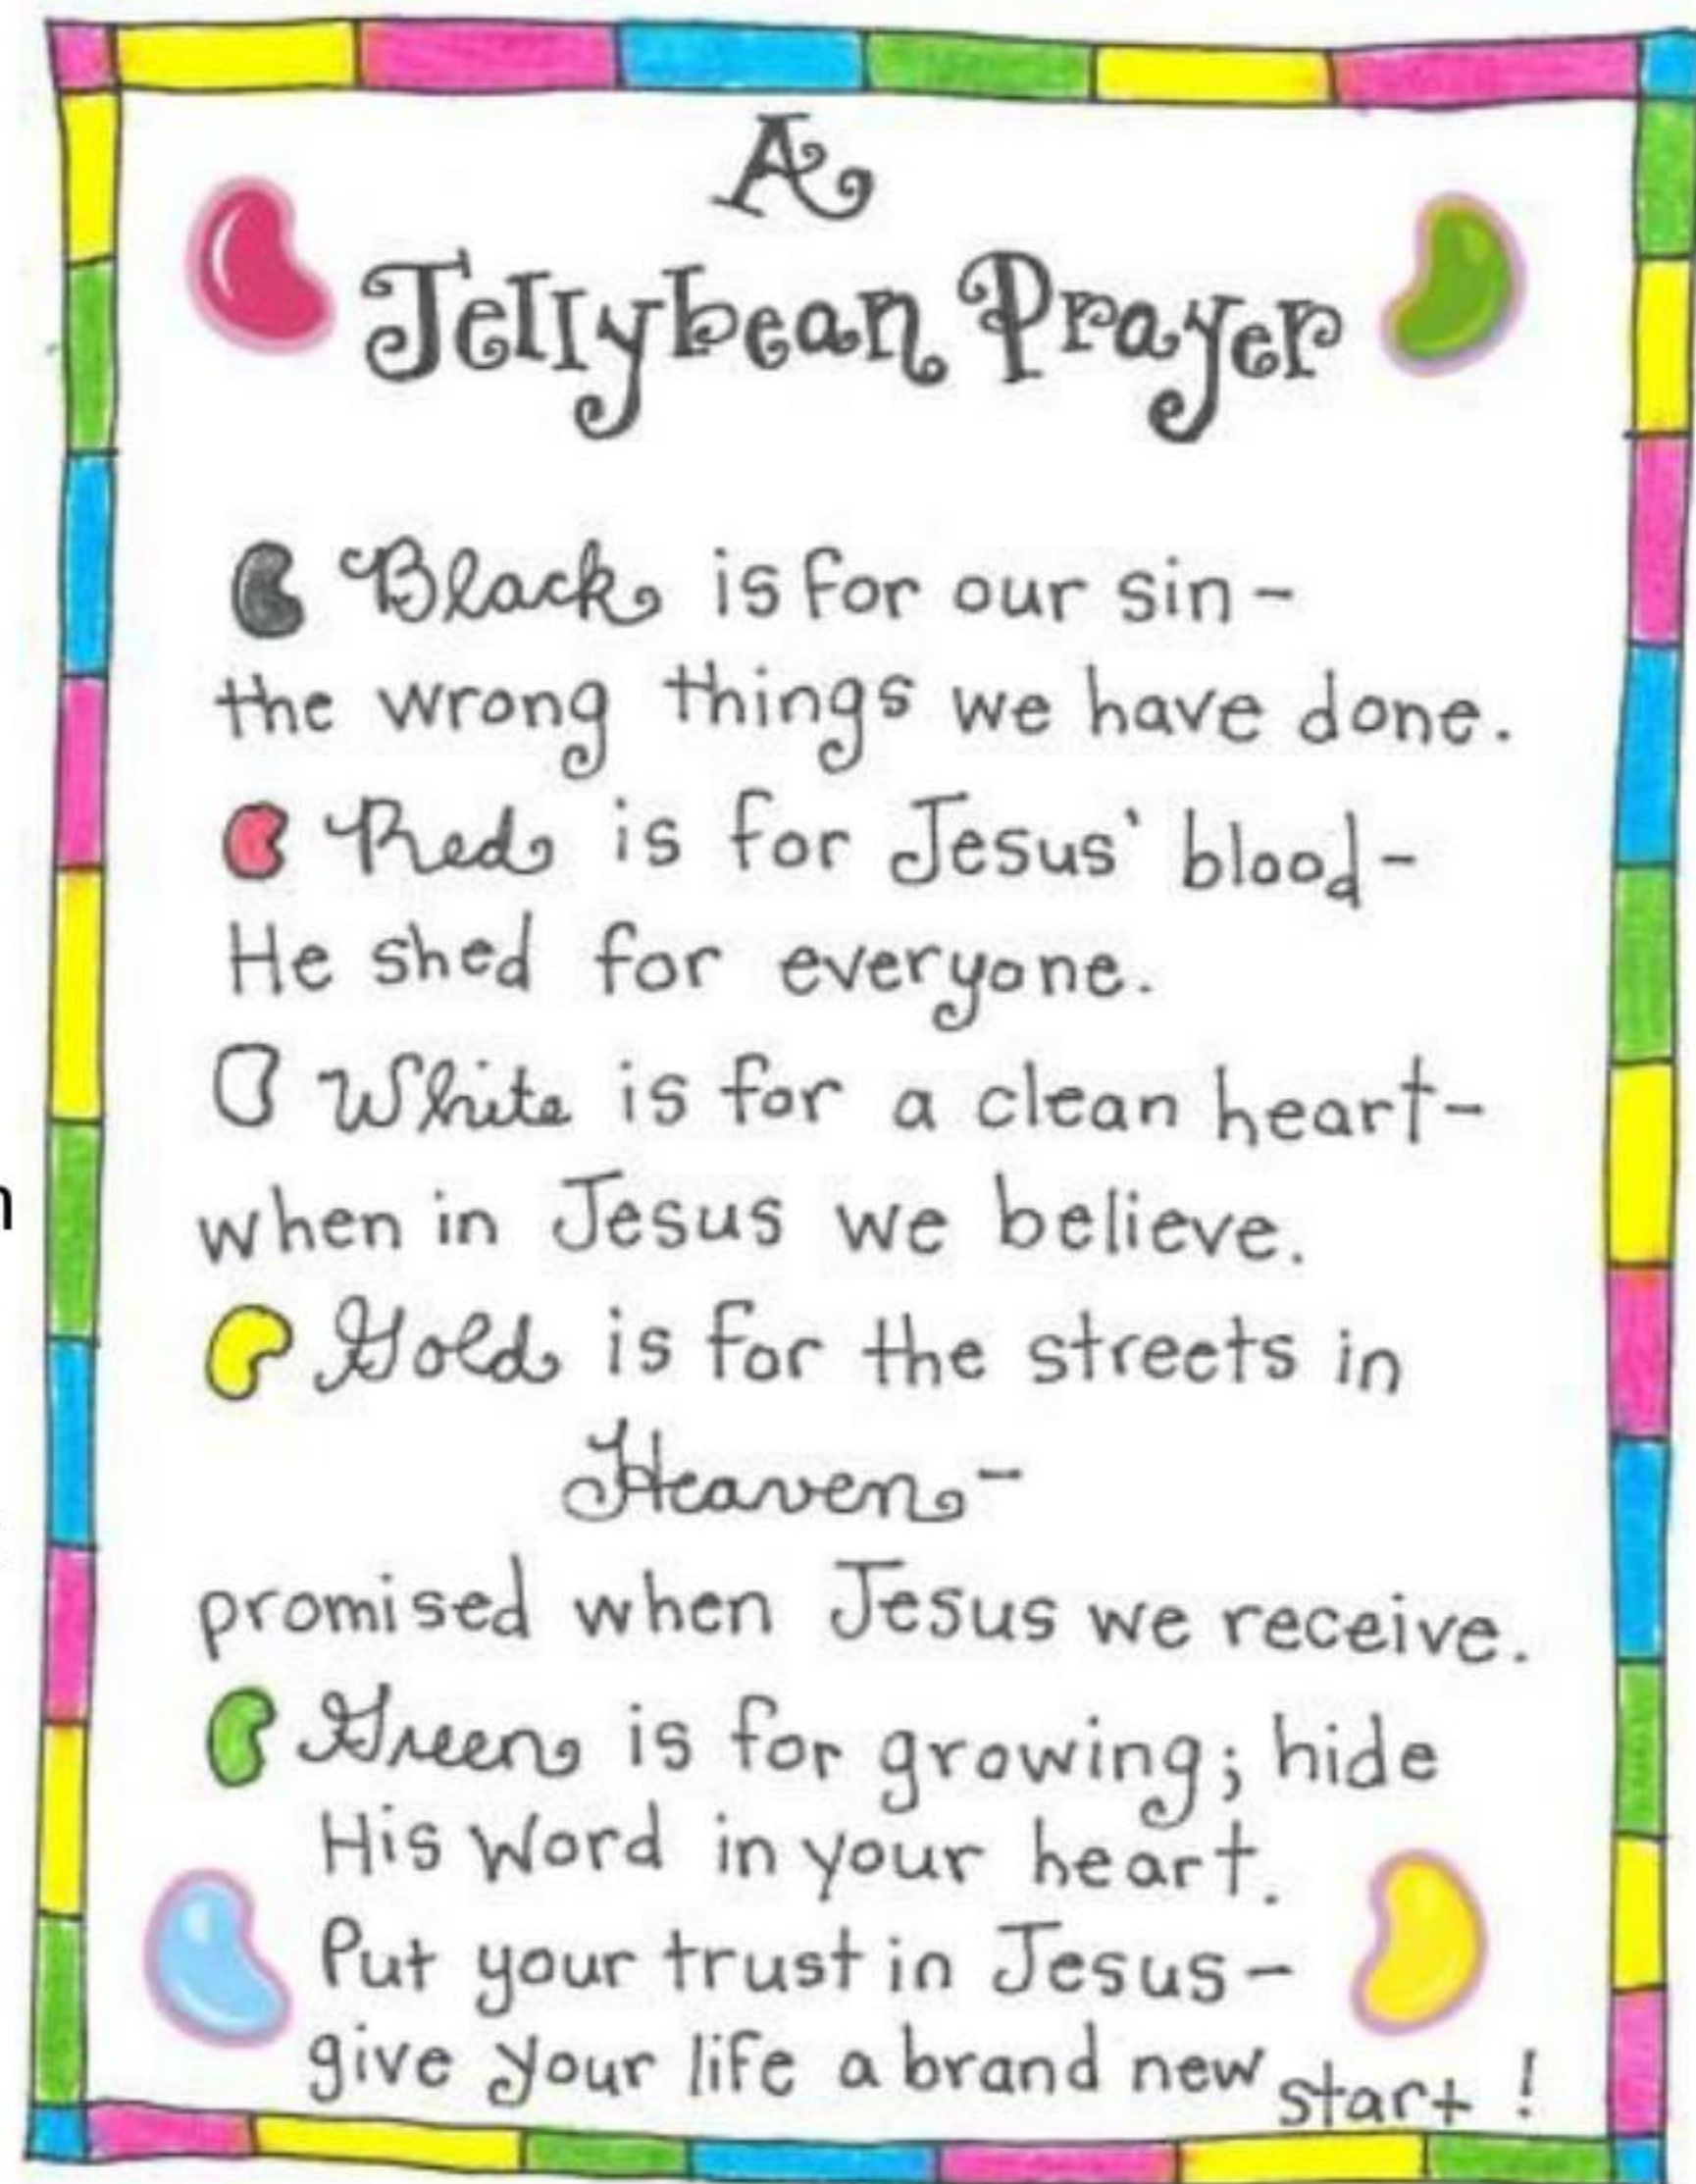 A
Jellybean Prayer
Black is for our sin-
the wrong things we have done.
Red is for Jesus' blood-
He shed for everyone.
White is for a clean heart-
when in Jesus we believe.
Gold is for the streets in
Heaven-
promised when Jesus we receive.
Green is for growing; hide
His Word in your heart.
Put your trust in Jesus-
give your life a brand new start!